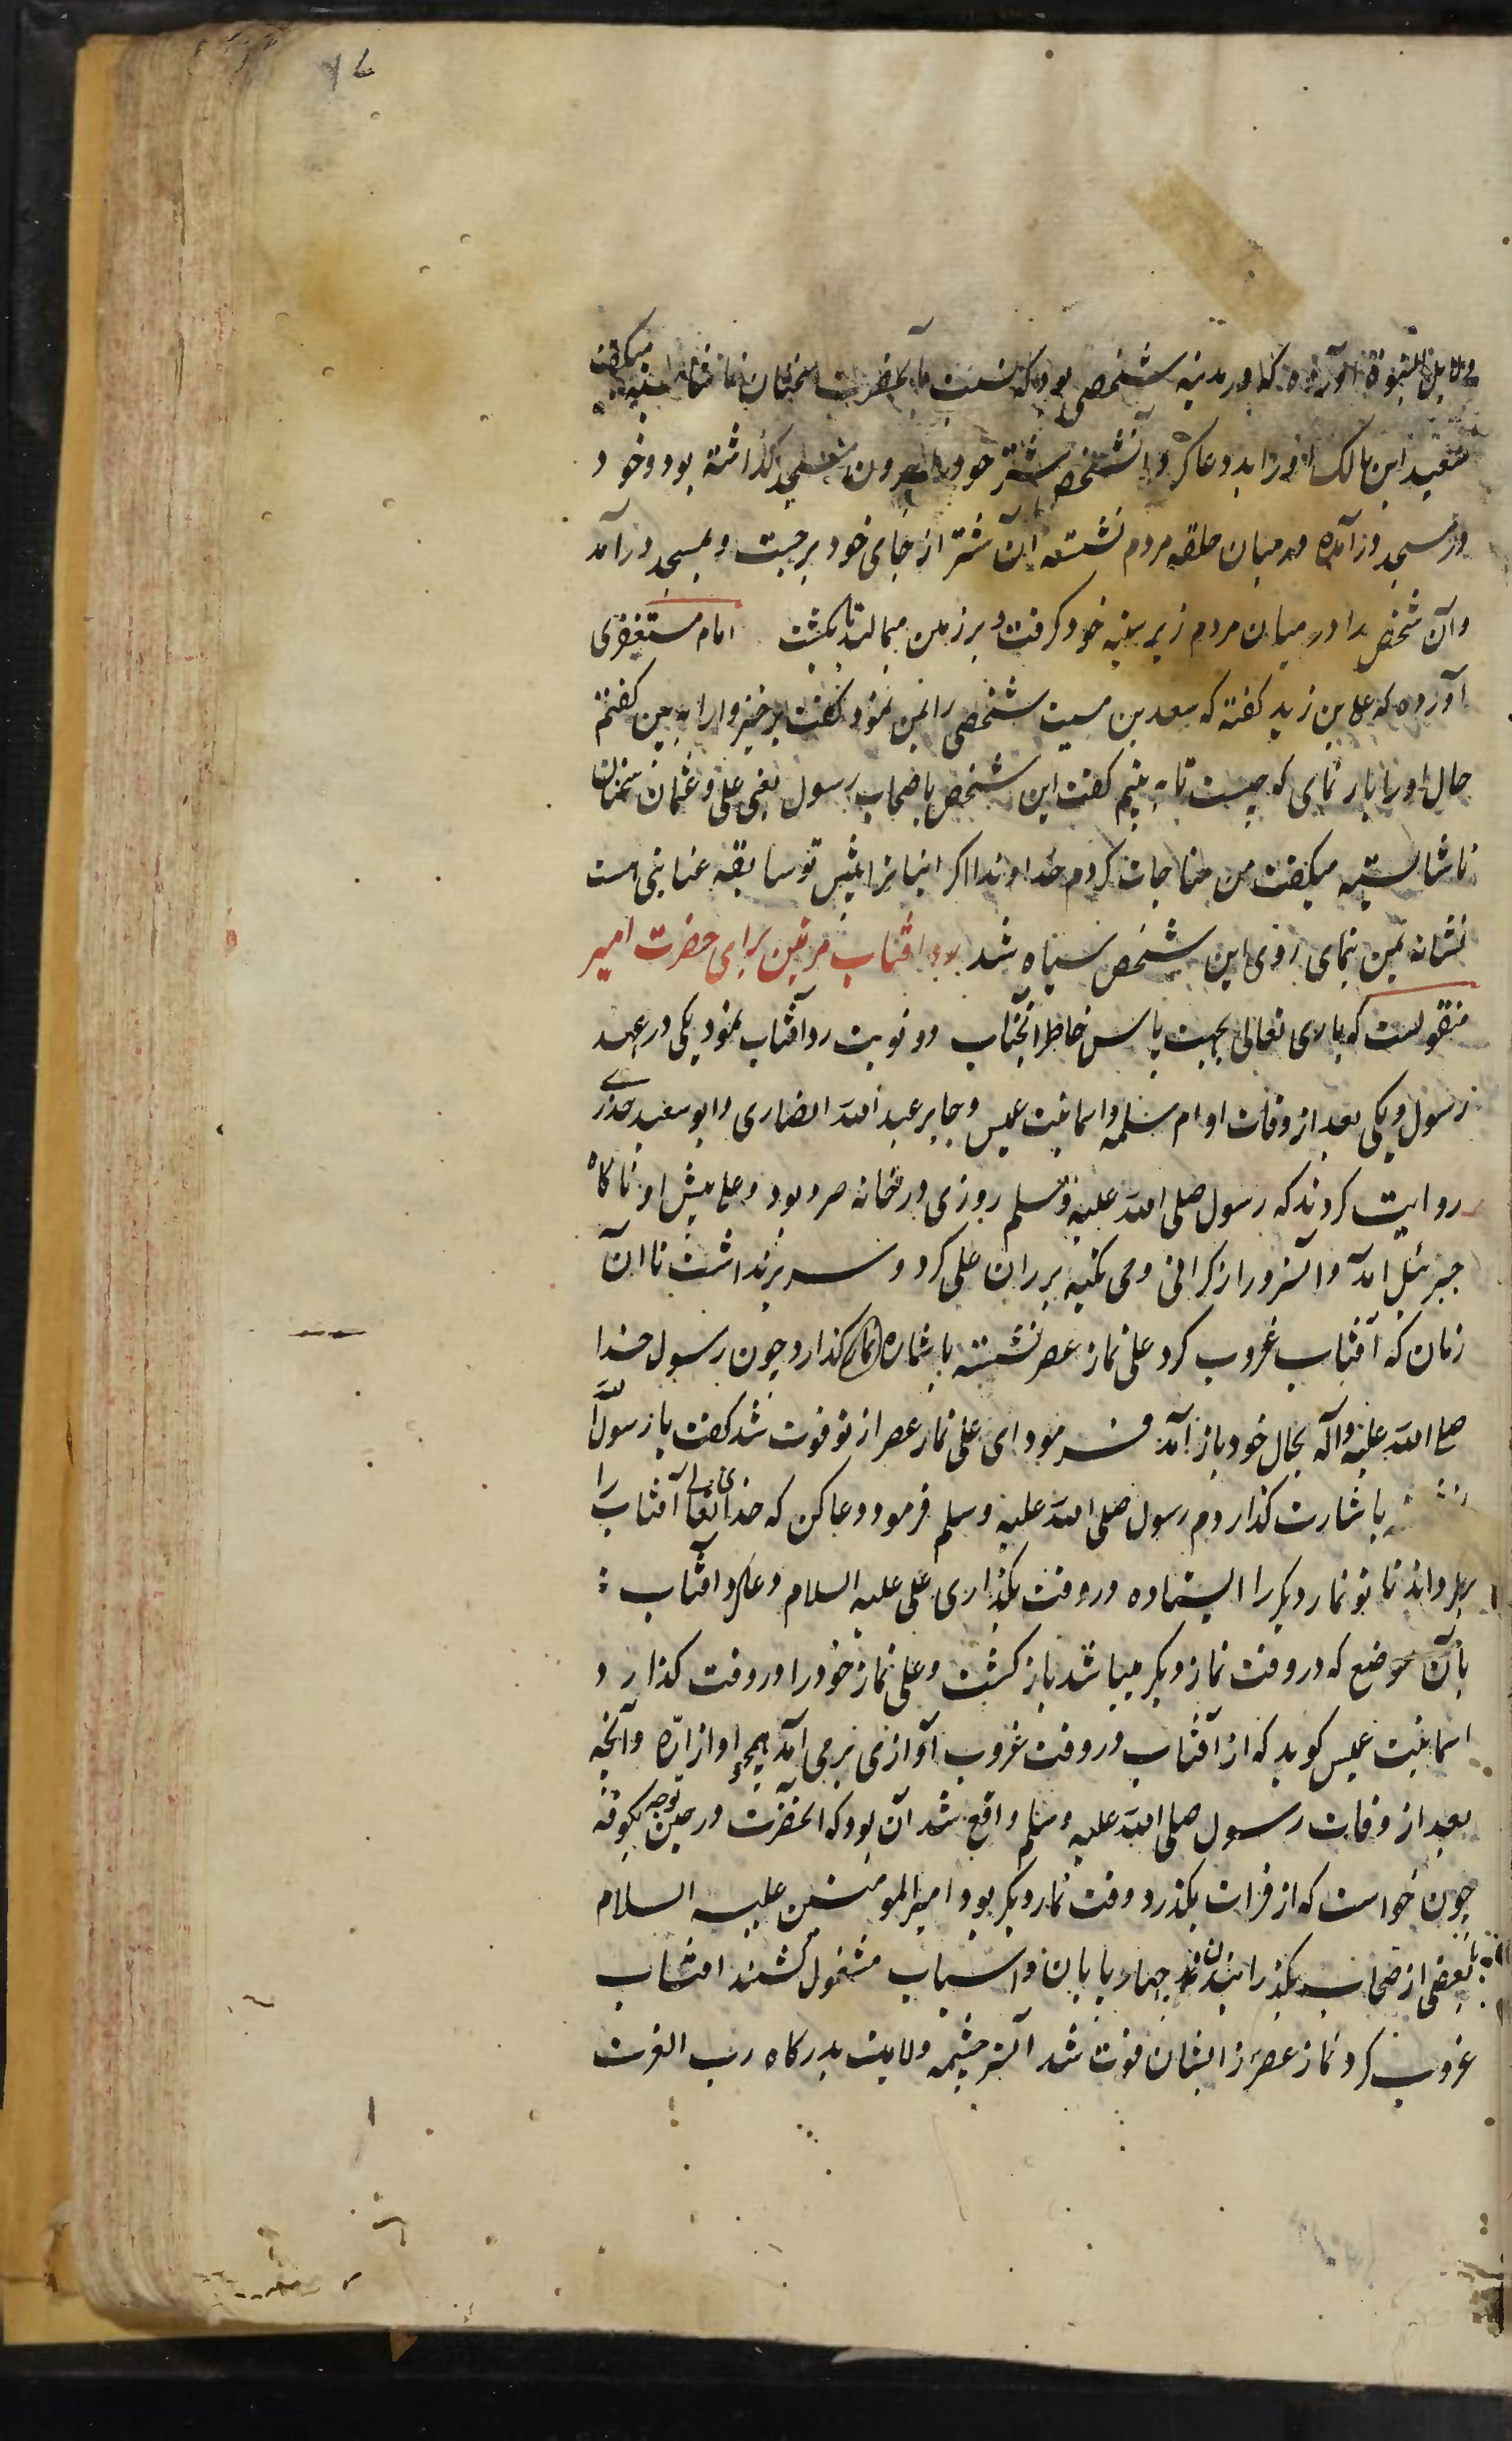 ۷۶
دلایل النبوة آورده که در مدینه شخصی بود که نسبت بآنحضرت سخنان ناشایسته میکفت
سعید ابن مالک او را بد دعا کرد و آنشخص شتر خود را بیرون مسجد کذاشته بود و خود
در مسجد درآمده در میان حلقه مردم نشسته آن شتر از جای خود برجست و بمسجد درآمد
و آن شخص را در میان مردم زیر سینه خود کرفت و بر زمین میمالید تا بکشت امام مستغفری
آورده که علی بن زید کفته که سعد بن مسیب شخصی را بمن نمود کفت برخیز و او را به بین کفتم
حال او را باز نمای که چیست تا به بینم کفت این شخص باصحاب رسول یعنی علی و عثمان سخنان
ناشایسته میکفت من مناجات کردم خداوندا اکر اینانرا پیش تو سابقه عنایتی هست
نشانه بمن بنمای روی این شخص سیاه شد رد آفتاب مرتین برای حضرت امیر
منقولست که باری تعالی بجهت پاس خاطر آنجناب دو نوبت رد آفتاب نمود یکی در عهد
رسول و یکی بعد از وفات او ام سلمه و اسما بنت عمیس و جابر عبد الله انصاری و ابو سعید خدری
روایت کردند که رسول صلی الله علیه و سلم روزی در خانه مروبود و علی پیش او ناکاه
جبرئیل آمد و آنسرور از کرانی وحی تکیه بر ران علی کرد و سر برنداشت تا آن
زمان که آفتاب غروب کرد علی نماز عصر نشسته باشاره نماز کذارد چون رسول خدا
صلی الله علیه و آله بحال خود باز آمد فرمود ای علی نماز عصر از تو فوت شد کفت یا رسول الله
نشسته باشارت کذاردم رسول صلی الله علیه وسلم فرمود دعا کن که خدای تعالی آفتاب را
بکرداند تا تو نماز دیکر را ایستاده در وقت بکذاری علی علیه السلام دعا کرد آفتاب
بآن موضع که در وقت نماز دیکر میباشد باز کشت و علی نماز خود را در وقت کذارد
اسما بنت عمیس کوید که از آفتاب در وقت غروب آوازی بر می آمد همچو آواز ارّه و آنچه
بعد از وفات رسول صلی الله علیه وسلم واقع شد آن بود که آنحضرت در حین توجه بکوفه
چون خواست که از فرات بکذرد وقت نماز دیکر بود امیرالمومنین علیه السلام
با بعضی از صحاب بکذرانیدن چهارپایان و اسباب مشغول کشتند آفتاب
غروب کرد نماز عصر از ایشان فوت شد آنسرچشمه ولایت بدرکاه رب العزت